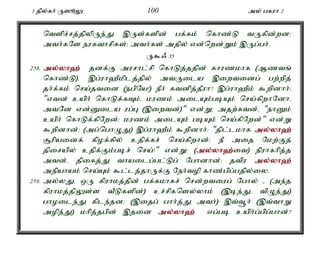 3 தில்கர் ருஸூலு 100 அல் பகரா 2
வெளிச்சத்திலிருந்து இருள்களின் பக்கம் கொண்டு வருகின்றன;
அவர்களே நரகவாசிகள்; அவர்கள் அதில் என்றென்றும் இருப்பர்.
ருகூஃ 35
258. அல்லாஹ் தனக்கு அரசாட்சி கொடுத்ததின் காரணமாக (ஆணவங்
கொண்டு), இப்ராஹீமிடத்தில் அவருடைய இறைவனைப் பற்றித்
தர்க்கம் செய்தவனை (நபியே!) நீர் கவனித்தீரா? இப்ராஹீம் கூறினார்:
"எவன் உயிர் கொடுக்கவும், மரணம் அடையும்படியும் செய்கிறானோ,
அவனே என்னுடைய ரப்பு (இறைவன்)" என்று; அதற்கவன், "நானும்
உயிர் கொடுக்கிறேன்; மரணம் அடையும் படியும் செய்கிறேன்" என்று
கூறினான்; (அப்பொழுது) இப்ராஹீம் கூறினார்: "திட்டமாக அல்லாஹ்
சூரியனைக் கிழக்கில் உதிக்கச் செய்கிறான்; நீ அதை மேற்குத்
திசையில் உதிக்கும்படிச் செய்!" என்று (அல்லாஹ்வை) நிராகரித்த
அவன், திகைத்து வாயடைப்பட்டுப் போனான்; தவிர அல்லாஹ்
அநியாயம் செய்யும் கூட்டத்தாருக்கு நேர்வழி காண்பிப்பதில்லை.
259. அல்லது, ஒரு கிராமத்தின் பக்கமாகச் சென்றவரைப் போல் - (அந்த
கிராமத்திலுள்ள வீடுகளின்) உச்சிகளெல்லாம் (இடிந்து, விழுந்து)
பாழடைந்து கிடந்தன; (இதைப் பார்த்து அவர்) இவ்வூர் (இவ்வாறு
அழிந்து) மரித்தபின் இதனை அல்லாஹ் எப்படி உயிர்ப்பிப்பான்?